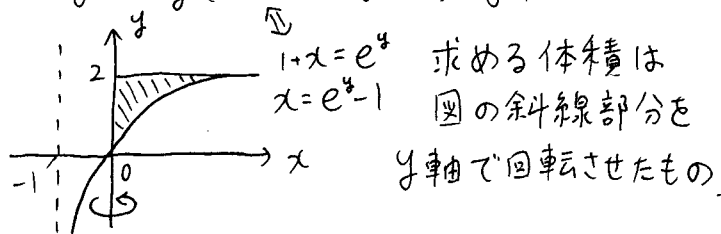 y
2
1+x=e^y
x=e^y-1
求める体積は
図の斜線部分を
y軸で回転させたもの.
-1
0
x